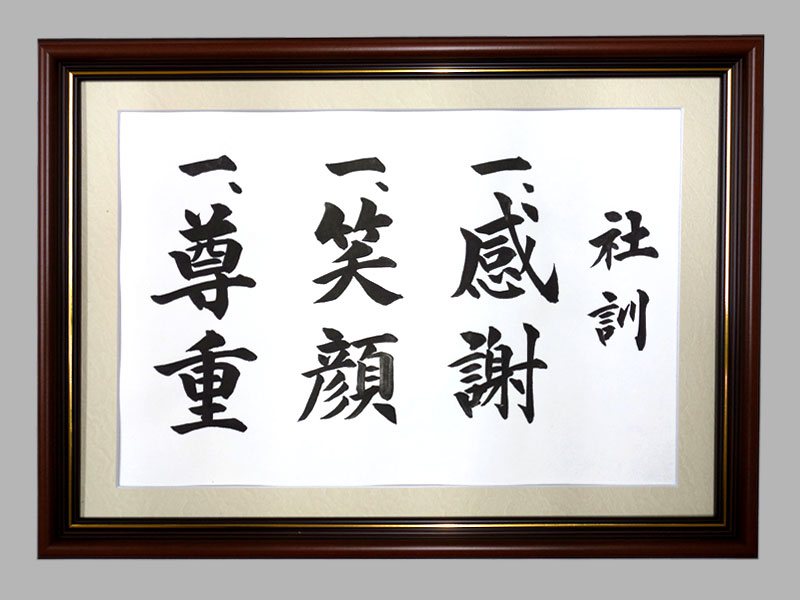 社訓
一、感謝
一、笑顔
一、尊重